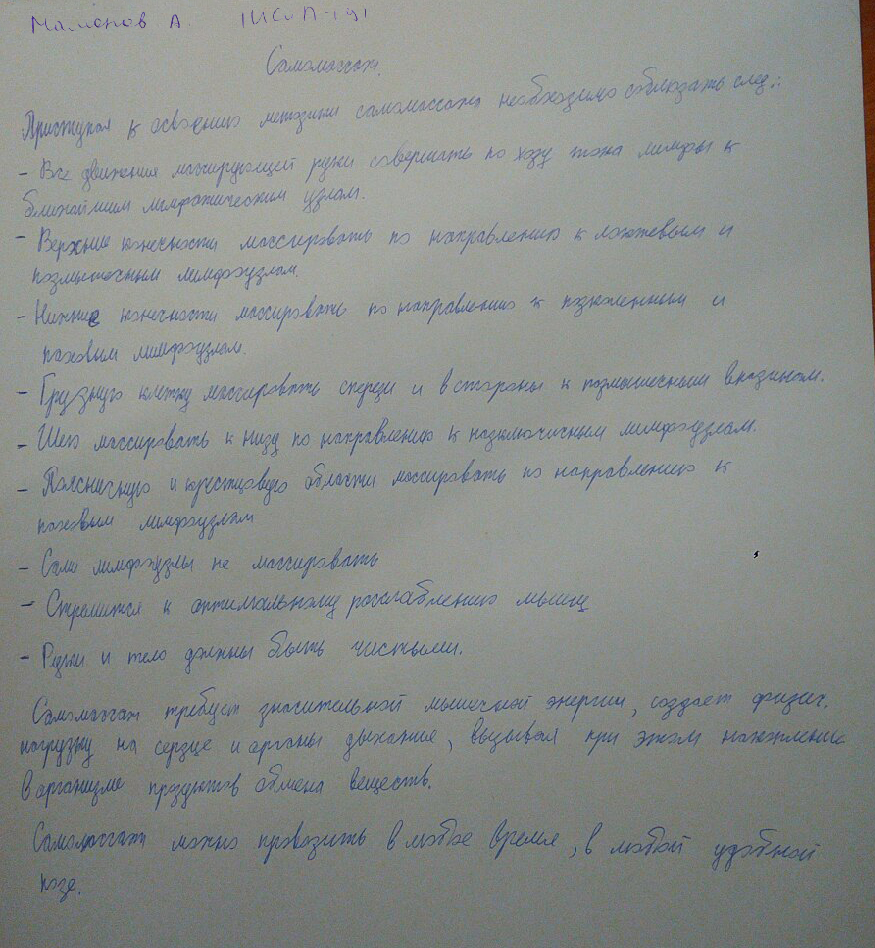 Мамонов А. 1ИСиП-191
Самомассаж.
Приступая к освоению методики самомассажа необходимо соблюдать след.:
- Все движения массирующей руки совершать по ходу тока лимфы к
ближайшим лимфатическим узлам.
- Верхние конечности массировать по направлению к локтевым и
подмышечным лимфоузлам.
- Нижние конечности массировать по направлению к подколенным и
паховым лимфоузлам.
- Грудную клетку массировать спереди и в стороны к подмышечным впадинам.
- Шею массировать к низу по направлению к подключичным лимфоузлам.
- Поясничную и крестцовую области массировать по направлению к
паховым лимфоузлам
- Сами лимфоузлы не массировать
- Стремится к оптимальному расслаблению мышц
- Руки и тело должны быть чистыми.
Самомассаж требует значительной мышечной энергии, создает физич.
нагрузку на сердце и органы дыхание, вызывая при этом накопление
в организме продуктов обмена веществ.
Самомассаж можно проводить в любое время, в любой удобной
позе.